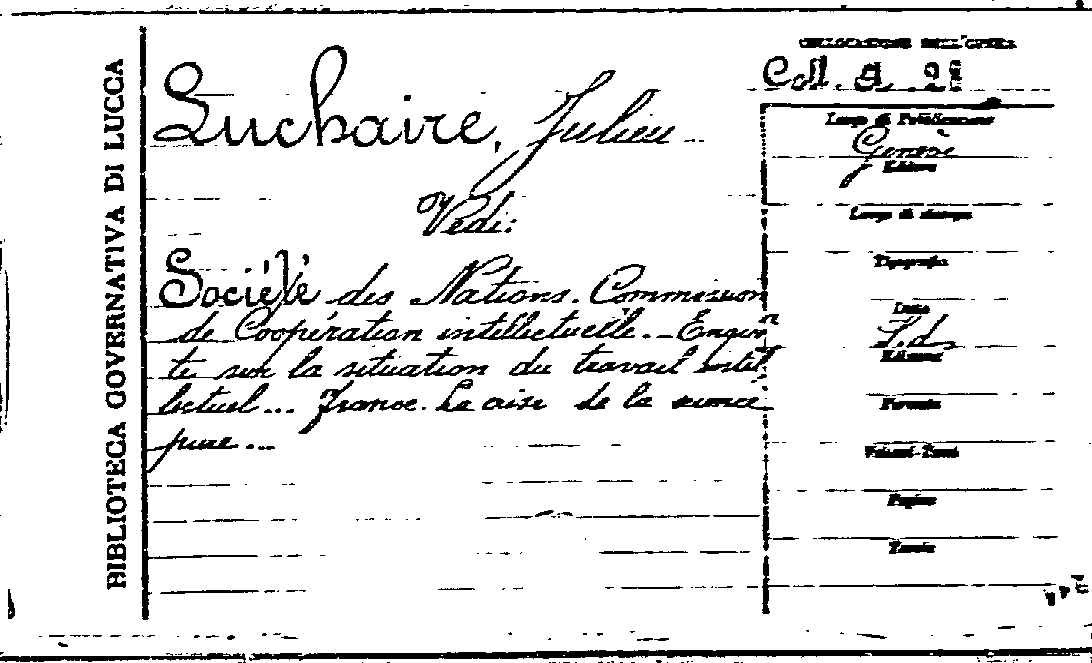 BIBLIOTECA GOVERNATIVA DI LUCCA
COLLOCAZIONE DELL'OPERA
Coll. G.
Luchaire, Julien
Vedi:
Société des Nations. Commission
de Coopération intellectuelle... Enquê
te sur la situation du travail intel
lectuel... France. La crise de la science
pure...
Luogo di Pubblicazione
Genève
Editore
Luogo di stampa
Tipografia
Data
S.d.
Edizione
Formato
Volumi-Tomi
Pagine
Tavole